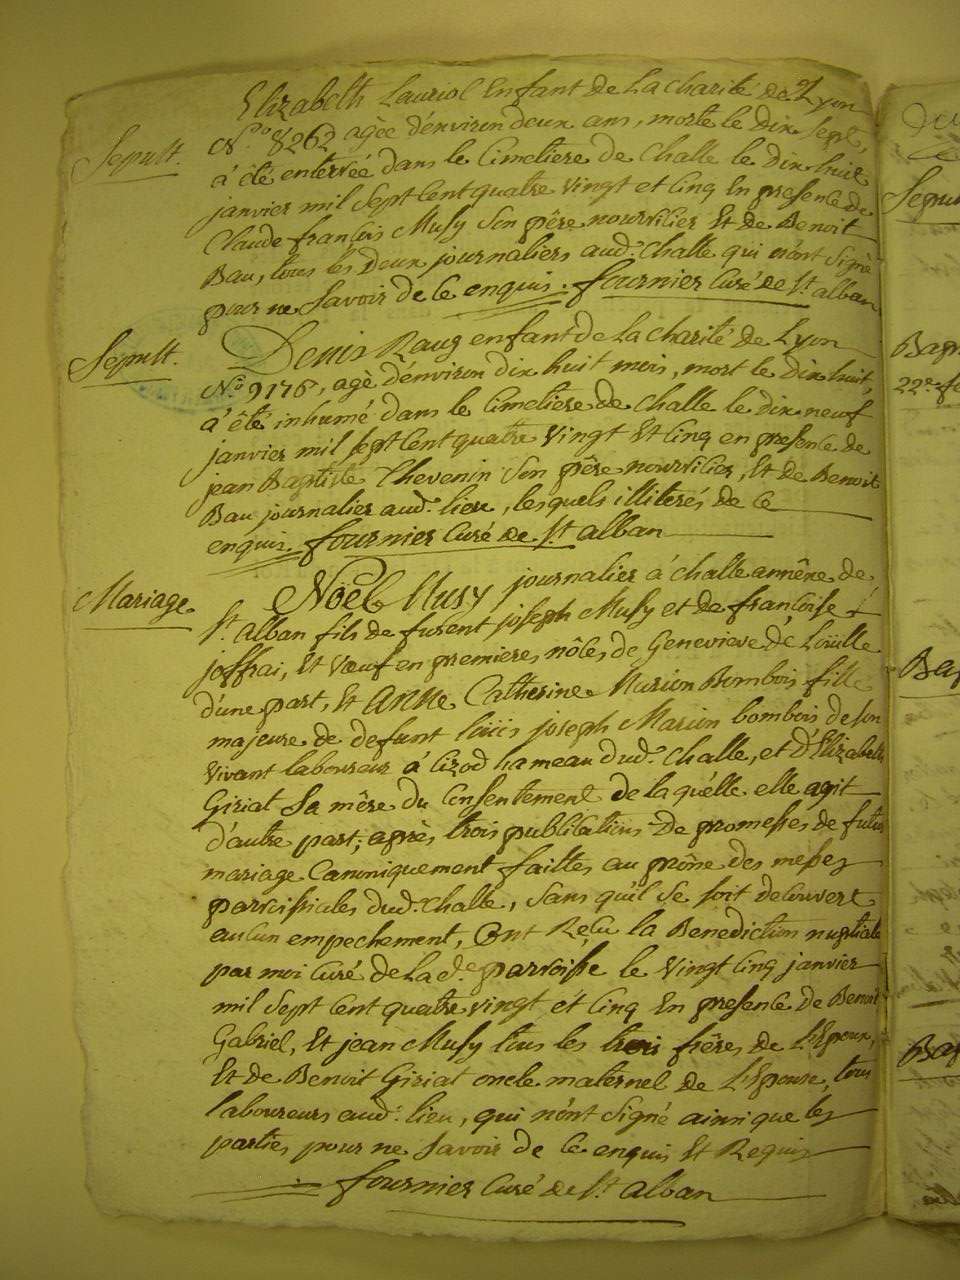 Elizabeth Lauriol Enfant de La Charité de Lyon
Sepult.
N.o 8262 agèe d'environ deux ans, morte le dix sept,
à été enterrée dans le Cimetiere de Challe le dix huit
janvier mil Sept Cent quatre Vingt et Cinq En presence de
Claude françois Musy Son père nourricier Et de Benoit
Bau, tous les deux journaliers aud. Challe qui n'ont Signé
pour ne Savoir de Ce enquis. fournier Curé de St alban
Sepult.
Denis Raug enfant de la Charité de Lyon
No 9176, agè d'environ dix huit mois, mort le dix huit,
à été inhumé dans le Cimetiere de Challe le dix neuf
janvier mil sept Cent quatre Vingt Et Cinq en presence de
jean Baptiste Thevenin Son père nourricier, Et de Benoit
Bau journalier aud. lieu, lesquels illiterés de Ce
enquis. fournier Curé de St alban
Mariage
Noël Musy journalier à Challe annêxe de
St. alban fils de fu joseph Musy et de françoise
joffrai, Et Vœuf en premieres nôces de Genevieve de
d'une part, Et ANNE Catherine Marion Bombois fille
majeure de defunt loüis joseph Marion bombois de son
Vivant laboureur à Cizod hameau dud. Challe, et d'Elizabeth
Giriat Sa mère du Consentement de laquélle elle agit
d'autre part; après trois publications de promesses de futur
mariage Canoniquement faittes au prône des messes
paroissiales dud. Challe, Sans qu'il Se soit decouvert
aucun empechement, Ont Reçu la Benediction nuptiale
par moi Curé de la d.e paroisse le Vingt Cinq janvier
mil Sept Cent quatre vingt et Cinq En presence de Benoit
Gabriel, Et jean Musy tous les trois frères de L'Epoux,
Et de Benoit Giriat oncle maternel de L'Epouse, tous
laboureurs aud. lieu, qui n'ont Signé ainsi que les
parties pour ne Savoir de Ce enquis Et Requis
fournier Curé de St. alban